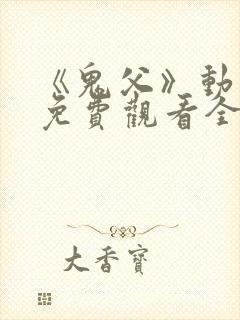 《鬼父》動
免費觀看全
大香寶